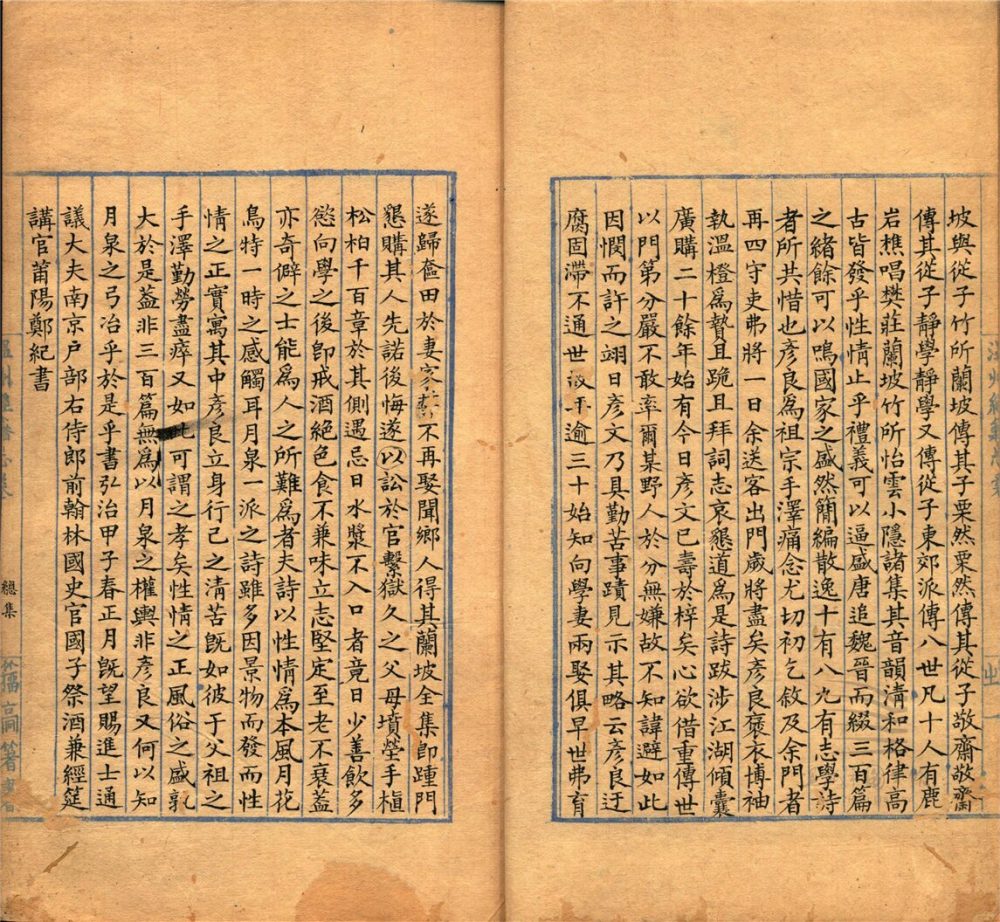 坡與從子竹所蘭坡傳其子栗然栗然傳其從子敬齋敬齋
傳其從子靜學靜學又傳從子東郊派傳八世凡十人有鹿
岩樵唱樊莊蘭坡竹所怡雲小隱諸集其音韻清和格律高
古皆發乎性情止乎禮義可以逼盛唐追魏晉而綴三百篇
之緒餘可以鳴國家之盛然簡編散逸十有八九有志學詩
者所共惜也彥良為祖宗手澤痛念尤切初乞敘及余門者
再四守吏弗將一日余送客出門歲將盡矣彥良褒衣博袖
執溫橙為贄且跪且拜詞志哀懇道為是詩跋涉江湖傾囊
廣購二十餘年始有今日彥文已壽於梓矣心欲借重傳世
以門第分嚴不敢率爾某野人於分無嫌故不知諱避如此
因憫而許之翊日彥文乃具勤苦事蹟見示其略云彥良迂
腐固滯不通世故年逾三十始知向學妻兩娶俱早世弗育
遂歸奩田於妻家誓不再娶聞鄉人得其蘭坡全集即踵門
懇購其人先諾後悔遂以訟於官繫獄久之父母墳塋手植
松柏千百章於其側遇忌日水漿不入口者竟日少善飲多
慾向學之後卽戒酒絕色食不兼味立志堅定至老不衰蓋
亦奇僻之士能為人之所難為者夫詩以性情為本風月花
鳥特一時之感觸耳月泉一派之詩雖多因景物而發而性
情之正實寓其中彥良立身行己之清苦旣如彼于父祖之
手澤勤勞盡瘁又如此可謂之孝矣性情之正風俗之盛孰
大於是蓋非三百篇無為以月泉之權輿非彥良又何以知
月泉之弓冶乎於是乎書弘治甲子春正月旣望賜進士通
議大夫南京戶部右侍郎前翰林國史官國子祭酒兼經筵
講官莆陽鄭紀書
總集